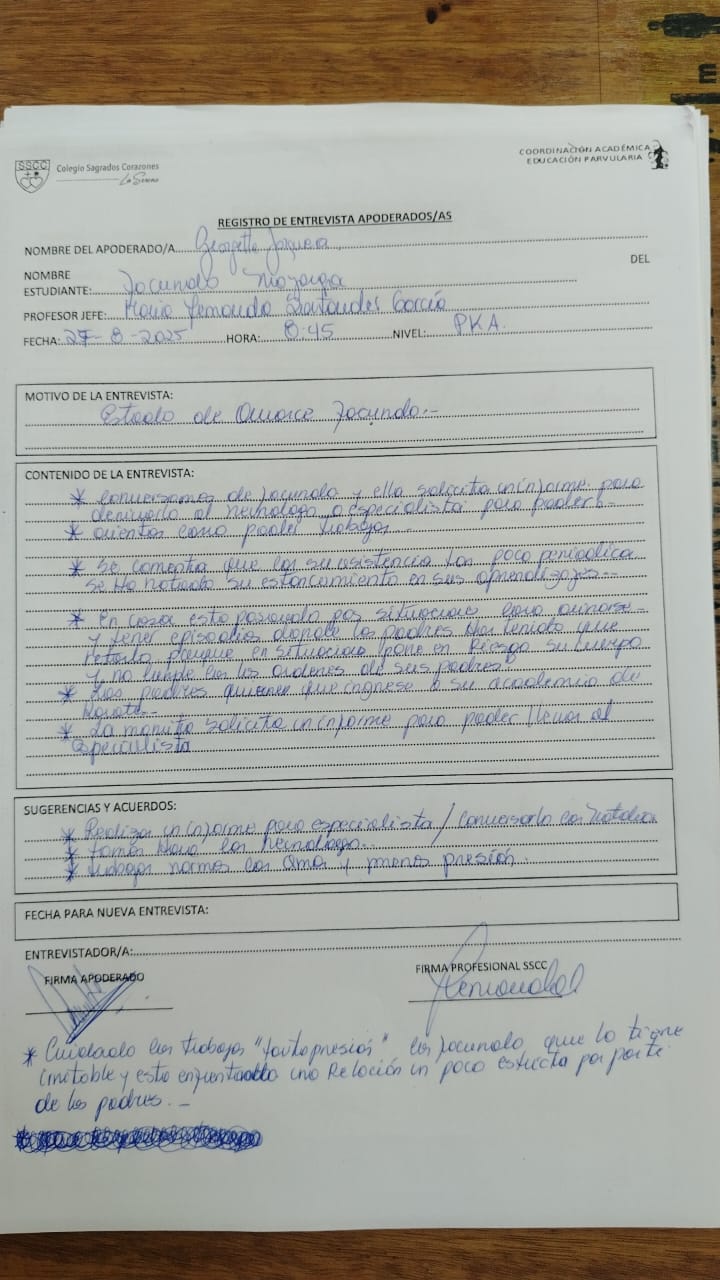 SSCC
Colegio Sagrados Corazones
La Serena
COORDINACIÓN ACADÉMICA
EDUCACIÓN PARVULARIA
REGISTRO DE ENTREVISTA APODERADOS/AS
NOMBRE DEL APODERADO/A Georgette
NOMBRE DEL
ESTUDIANTE: Facundo
PROFESOR JEFE: María Fernanda Santander García
FECHA: 27-8-2025 HORA: 8:45 NIVEL: PKA.
MOTIVO DE LA ENTREVISTA:
Estado de Avance Facundo.-
CONTENIDO DE LA ENTREVISTA:
* Conversamos de Facundo y ella solicita un informe para
derivarlo al neurólogo o especialista para poder
* orientar como poder trabajar.
* Se comenta que con su asistencia tan poco periódica
se ha notado su estancamiento en sus aprendizajes.-
* En casa esta pasando por situaciones
y tener episodios donde los padres han tenido que
porque en situaciones pone en Riesgo su cuerpo
y no cumple con las ordenes de sus padres.
* Los padres quieren que ingrese a su academia de
Karate.-
* La mamita solicita un informe para poder llevar al
especialista
SUGERENCIAS Y ACUERDOS:
* Realizar un informe para especialista / Conversarlo con Natalia
* Tomar Hora con neurólogo..
* trabajar normas con Amor y menos presión.
FECHA PARA NUEVA ENTREVISTA:
ENTREVISTADOR/A:
FIRMA APODERADO
FIRMA PROFESIONAL SSCC
* Cuidado con trabajar "tanta presión" con Facundo que lo tiene
irritable y esta enfrentando una Relación un poco estricta por parte
de los padres.-